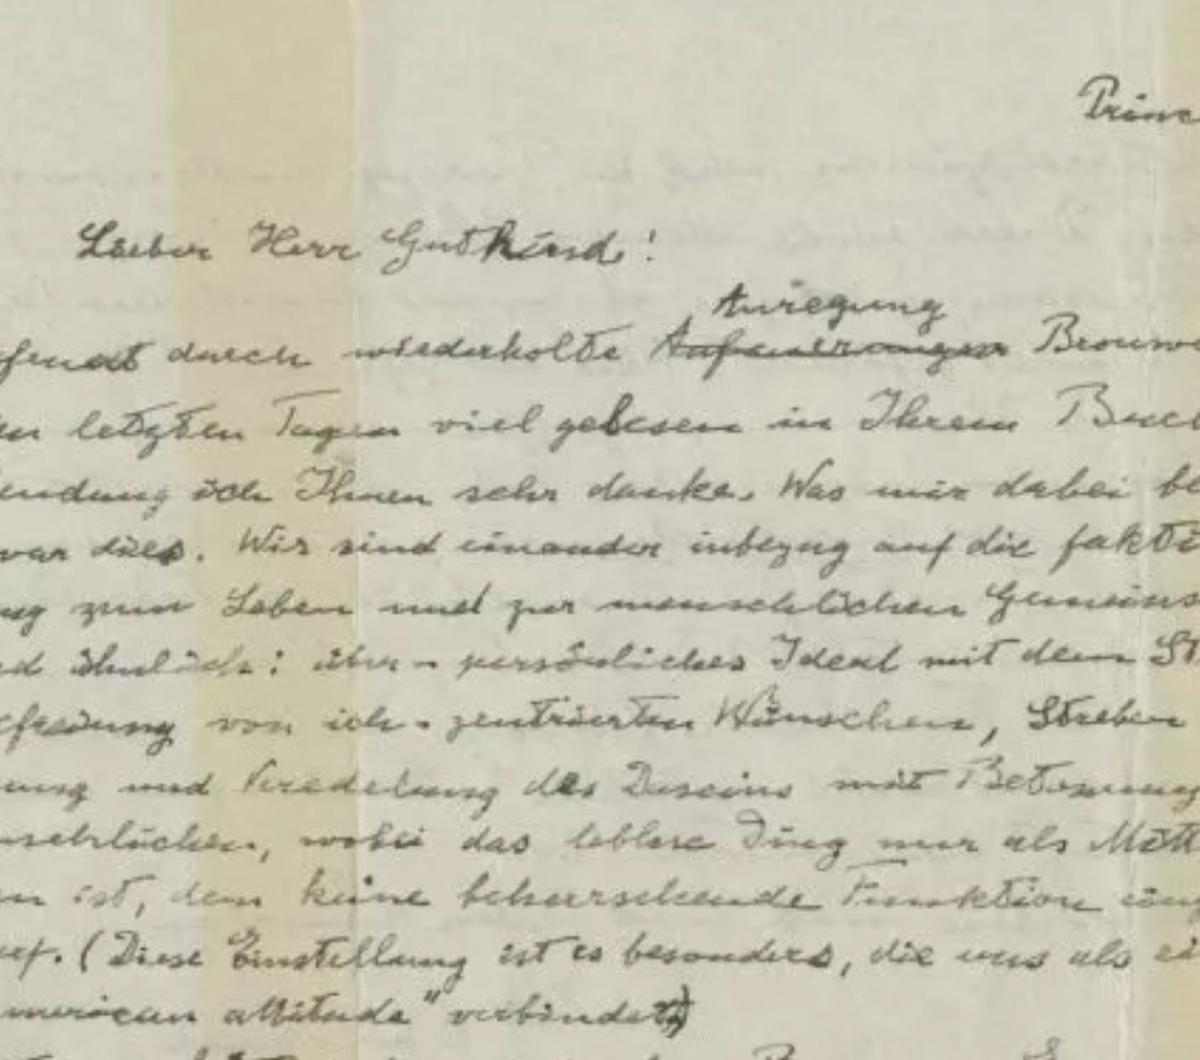 Princ
Lieber Herr Gutkind!
Anregung
feuert durch wiederholte Aufmunterungen Brouwe
en letzten Tagen viel gelesen in Ihrem Buc
endung ich Ihnen sehr danke. Was mir dabei be
war dies. Wir sind einander inbezug auf die fakti
ng zum Leben und zur menschlichen Gemeins
nd ähnlich: über-persönliches Ideal mit dem St
efreiung von ich-zentrierten Wünschen, Streben
ung und Veredelung des Daseins mit Betonung
nschlichen, wobei das leblose Ding nur als Mitt
en ist, dem keine beherrschende Funktion eing
rf. (Diese Einstellung ist es besonders, die uns als ei
merican attitude" verbindet)